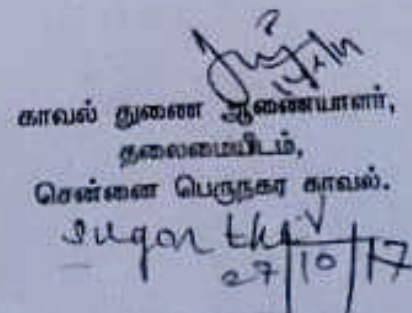 காவல் துணை ஆணையாளர்,
தலைமையிடம்,
சென்னை பெருநகர காவல்.
27/10/17